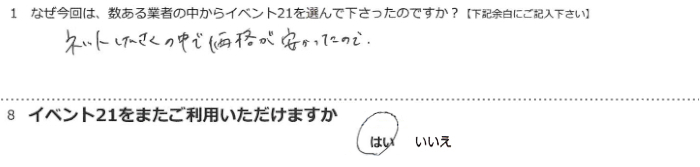 1 なぜ今回は、数ある業者の中からイベント21を選んで下さったのですか？【下記余白にご記入下さい】
ネットけんさくの中で価格が安かったので.
8 イベント21をまたご利用いただけますか
はい いいえ